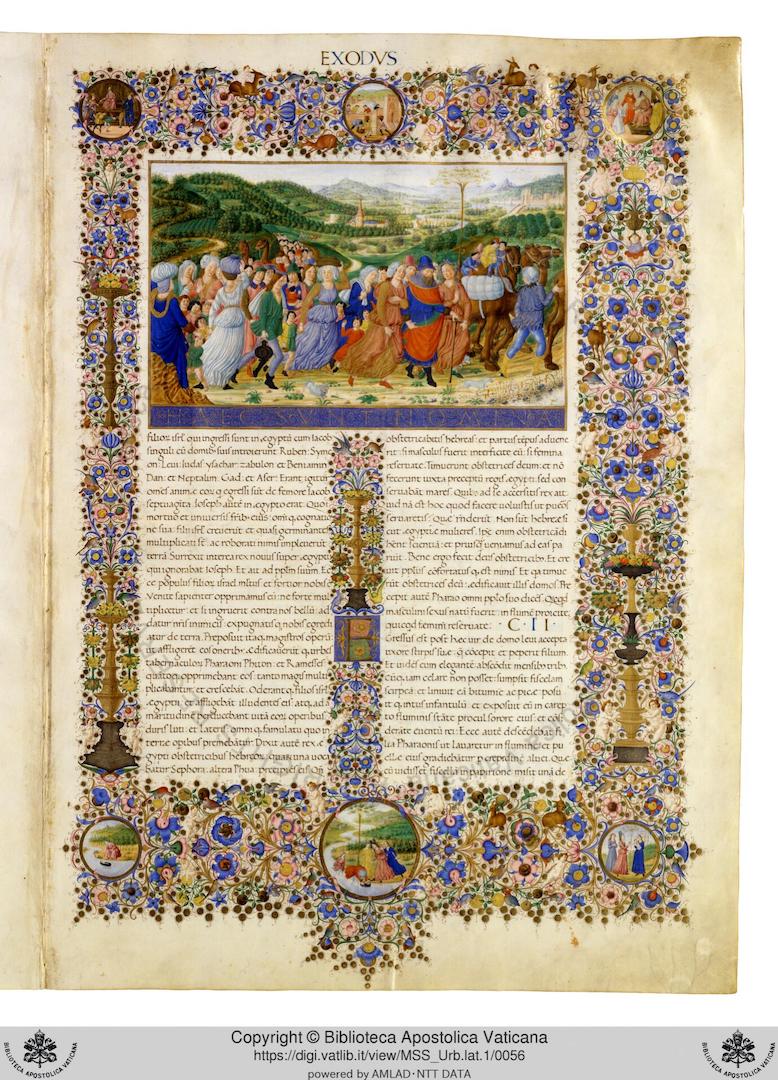 EXODVS
HAEC SVNT NOMINA
filioꝝ isrl̃ qui ingressi sunt in ęgyptũ cum Iacob
singuli cũ domib⁹ suis introierunt. Ruben: Syme
on: Leui: Iuda: Ysachar: zabulon et Beniamin
Dan: et Neptalim: Gad: et Aser: Erant igitur
omẽs animę eoꝝ q̃ egressi sũt de femore Iacob
septuaginta. Ioseph autẽ in ęgypto erat. Quo
mortuo et uniuersis frib⁹ eius: omiq; cognatio
ne sua: filii isrl̃ creuerunt et quasi germinantes
multiplicati sũt: ac roborati nimis impleuerunt
terrã. Surrexit interea rex nouus super ęgyptũ
qui ignorabat Ioseph. Et ait ad pplm̃ suum. Ec
ce p̃pulus filioꝝ isrl̃ mltus et fortior nobis ẽ
Venite sapienter opprimamus eũ: ne forte mul
tiplicetur: et si ingruerit contra nos bellũ: ad
datur nr̃is inimicis: expugnatisq; nobis egredi
atur de terra. Preposuit itaq; magistros operũ
ut affligerẽt eos oneribꝰ. edificaueruntq; urbes
tabernaculoꝝ Pharaoni Phiton: et Ramesses.
quãtoq; opprimebant eos: tanto magis multi
plicabantur et crescebãt. Oderantq; filios isrl̃
ęgyptii et affligebãt illudentes eis: atq; ad a
maritudinẽ perducebant uitã eoꝝ operibus
duris luti: et lateris: omniq; famulatu quo in
terrę opibus premebãtur. Dixit autẽ rex ę
gypti obstetricibus hebreoꝝ: quarum una uoca
batur Sephora: altera Phua: precipiens eis. Qñ
obstetricabitis hebreas: et partus tẽpus aduene
rit: si masculus fuerit: interficite eũ: si femina
reseruate. Timuerunt obstetrices deum: et nõ
fecerunt iuxta preceptũ regis ęgypti: sed con
seruabãt mares. Quib⁹ ad se accersitis rex ait.
Quid nã est hoc quod facere uoluistis ut pueros
seruaretis: Quę rñderũt. Non sũt hebreę si
cut ęgyptię mulieres. Ipę enim obstetricãdi
hẽnt scientiã: et priusq̃ ueniamus ad eas pa
riunt. Bene ergo fecit deus obstetricib⁹. Et cre
uit ppl̃us: cõfortatusq; est nimis. Et q̃a timue
runt obstetrices deũ: ędificauit illis domos. Pre
cepit autẽ Pharao omni pplo suo dicẽs. Quicqd
masculini sexus natũ fuerit: in flumẽ proicite:
quicqd feminini reseruate. C · II ·
Egressus est post hęc uir de domo leui: accepta
uxore stirpis suę: q̃ cõcepit et peperit filium.
Et uidẽs eum elegantẽ: abscõdit mensib⁹ trib⁹
Cũq; iam celare non posset: sumpsit fiscelam
scirpeã: et liniuit eã bitumine ac pice: posu
itq; intus infantulũ: et exposuit eũ in carec
to fluminis: stãte procul sorore eius: et consi
derãte euentũ rei. Ecce autẽ descẽdebat fi
lia Pharaonis ut lauaretur in flumine: et pu
ellę eius gradiebãtur per crepidinẽ aluei. Que
cũ uidisset fiscelã in papirione: misit unã de
Copyright © Biblioteca Apostolica Vaticana
https://digi.vatlib.it/view/MSS_Urb.lat.1/0056
powered by AMLAD·NTT DATA
BIBLIOTECA APOSTOLICA VATICANA
BIBLIOTECA APOSTOLICA VATICANA